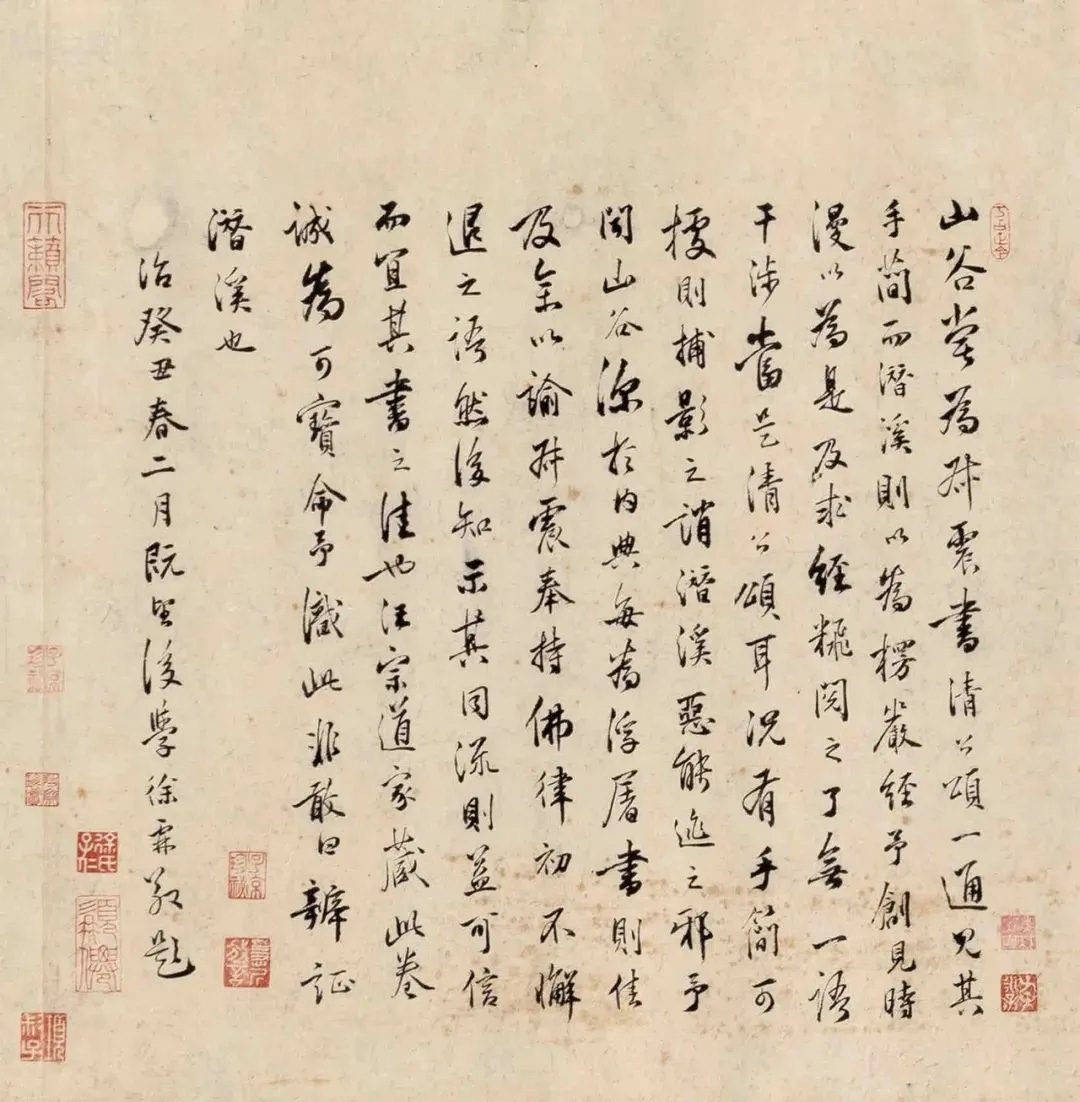 山谷嘗為叔震書清公頌一通見其
手簡而潛溪則以為楞嚴經予創見時
漫以為是及求經閱之了無一語
干涉當是清公頌耳況有手簡可
據則捕影之誚潛溪惡能逃之邪予
聞山谷深於內典每為浮屠書則佳
及余以諭叔震奉持佛律初不懈
退之語然後知示其同流則益可信
而宜其書之佳也汪宗道家藏此卷
誠為可寶命予識此非敢曰辯証
潛溪也
治癸丑春二月既望後學徐霖敬題
徐氏子仁
天籟閣
項叔子